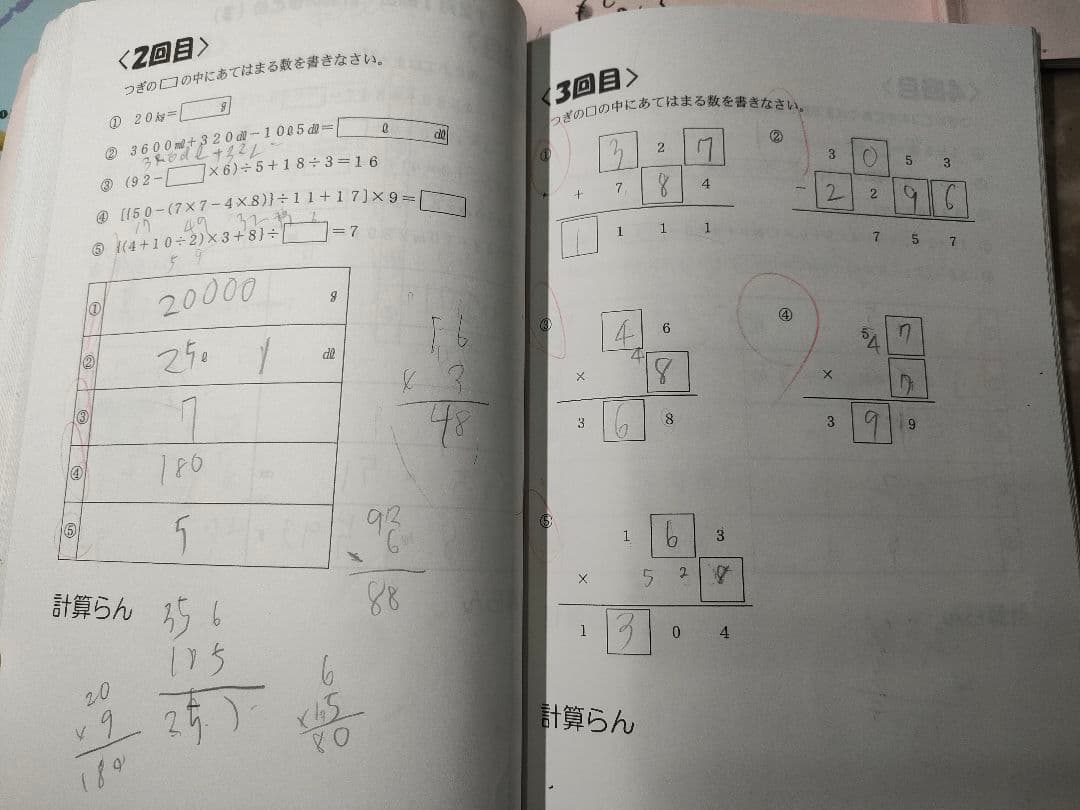 〈2回目〉
つぎの□の中にあてはまる数を書きなさい。
① 20kg=□g
② 3600mℓ+320dℓ-10ℓ5dℓ=□ℓ dℓ
③ (92-□×6)÷5+18÷3=16
④ [{50-(7×7-4×8)}÷11+17]×9=□
17 49 32
⑤ {(4+10÷2)×3+8}÷□=7
5 9
① 20000 g
② 25ℓ 1 dℓ
③ 7
④ 180
⑤ 5
16
× 3
48
93
6
88
計算らん
20
× 9
180
6
×15
80
〈3回目〉
つぎの□の中にあてはまる数を書きなさい。
①
3 2 7
+ 7 8 4
1 1 1 1
②
3 0 5 3
- 2 2 9 6
7 5 7
③
4 6
4
× 8
3 6 8
④
5 4 7
× 7
3 9 9
⑤
1 6 3
× 5 2 8
1 3 0 4
計算らん